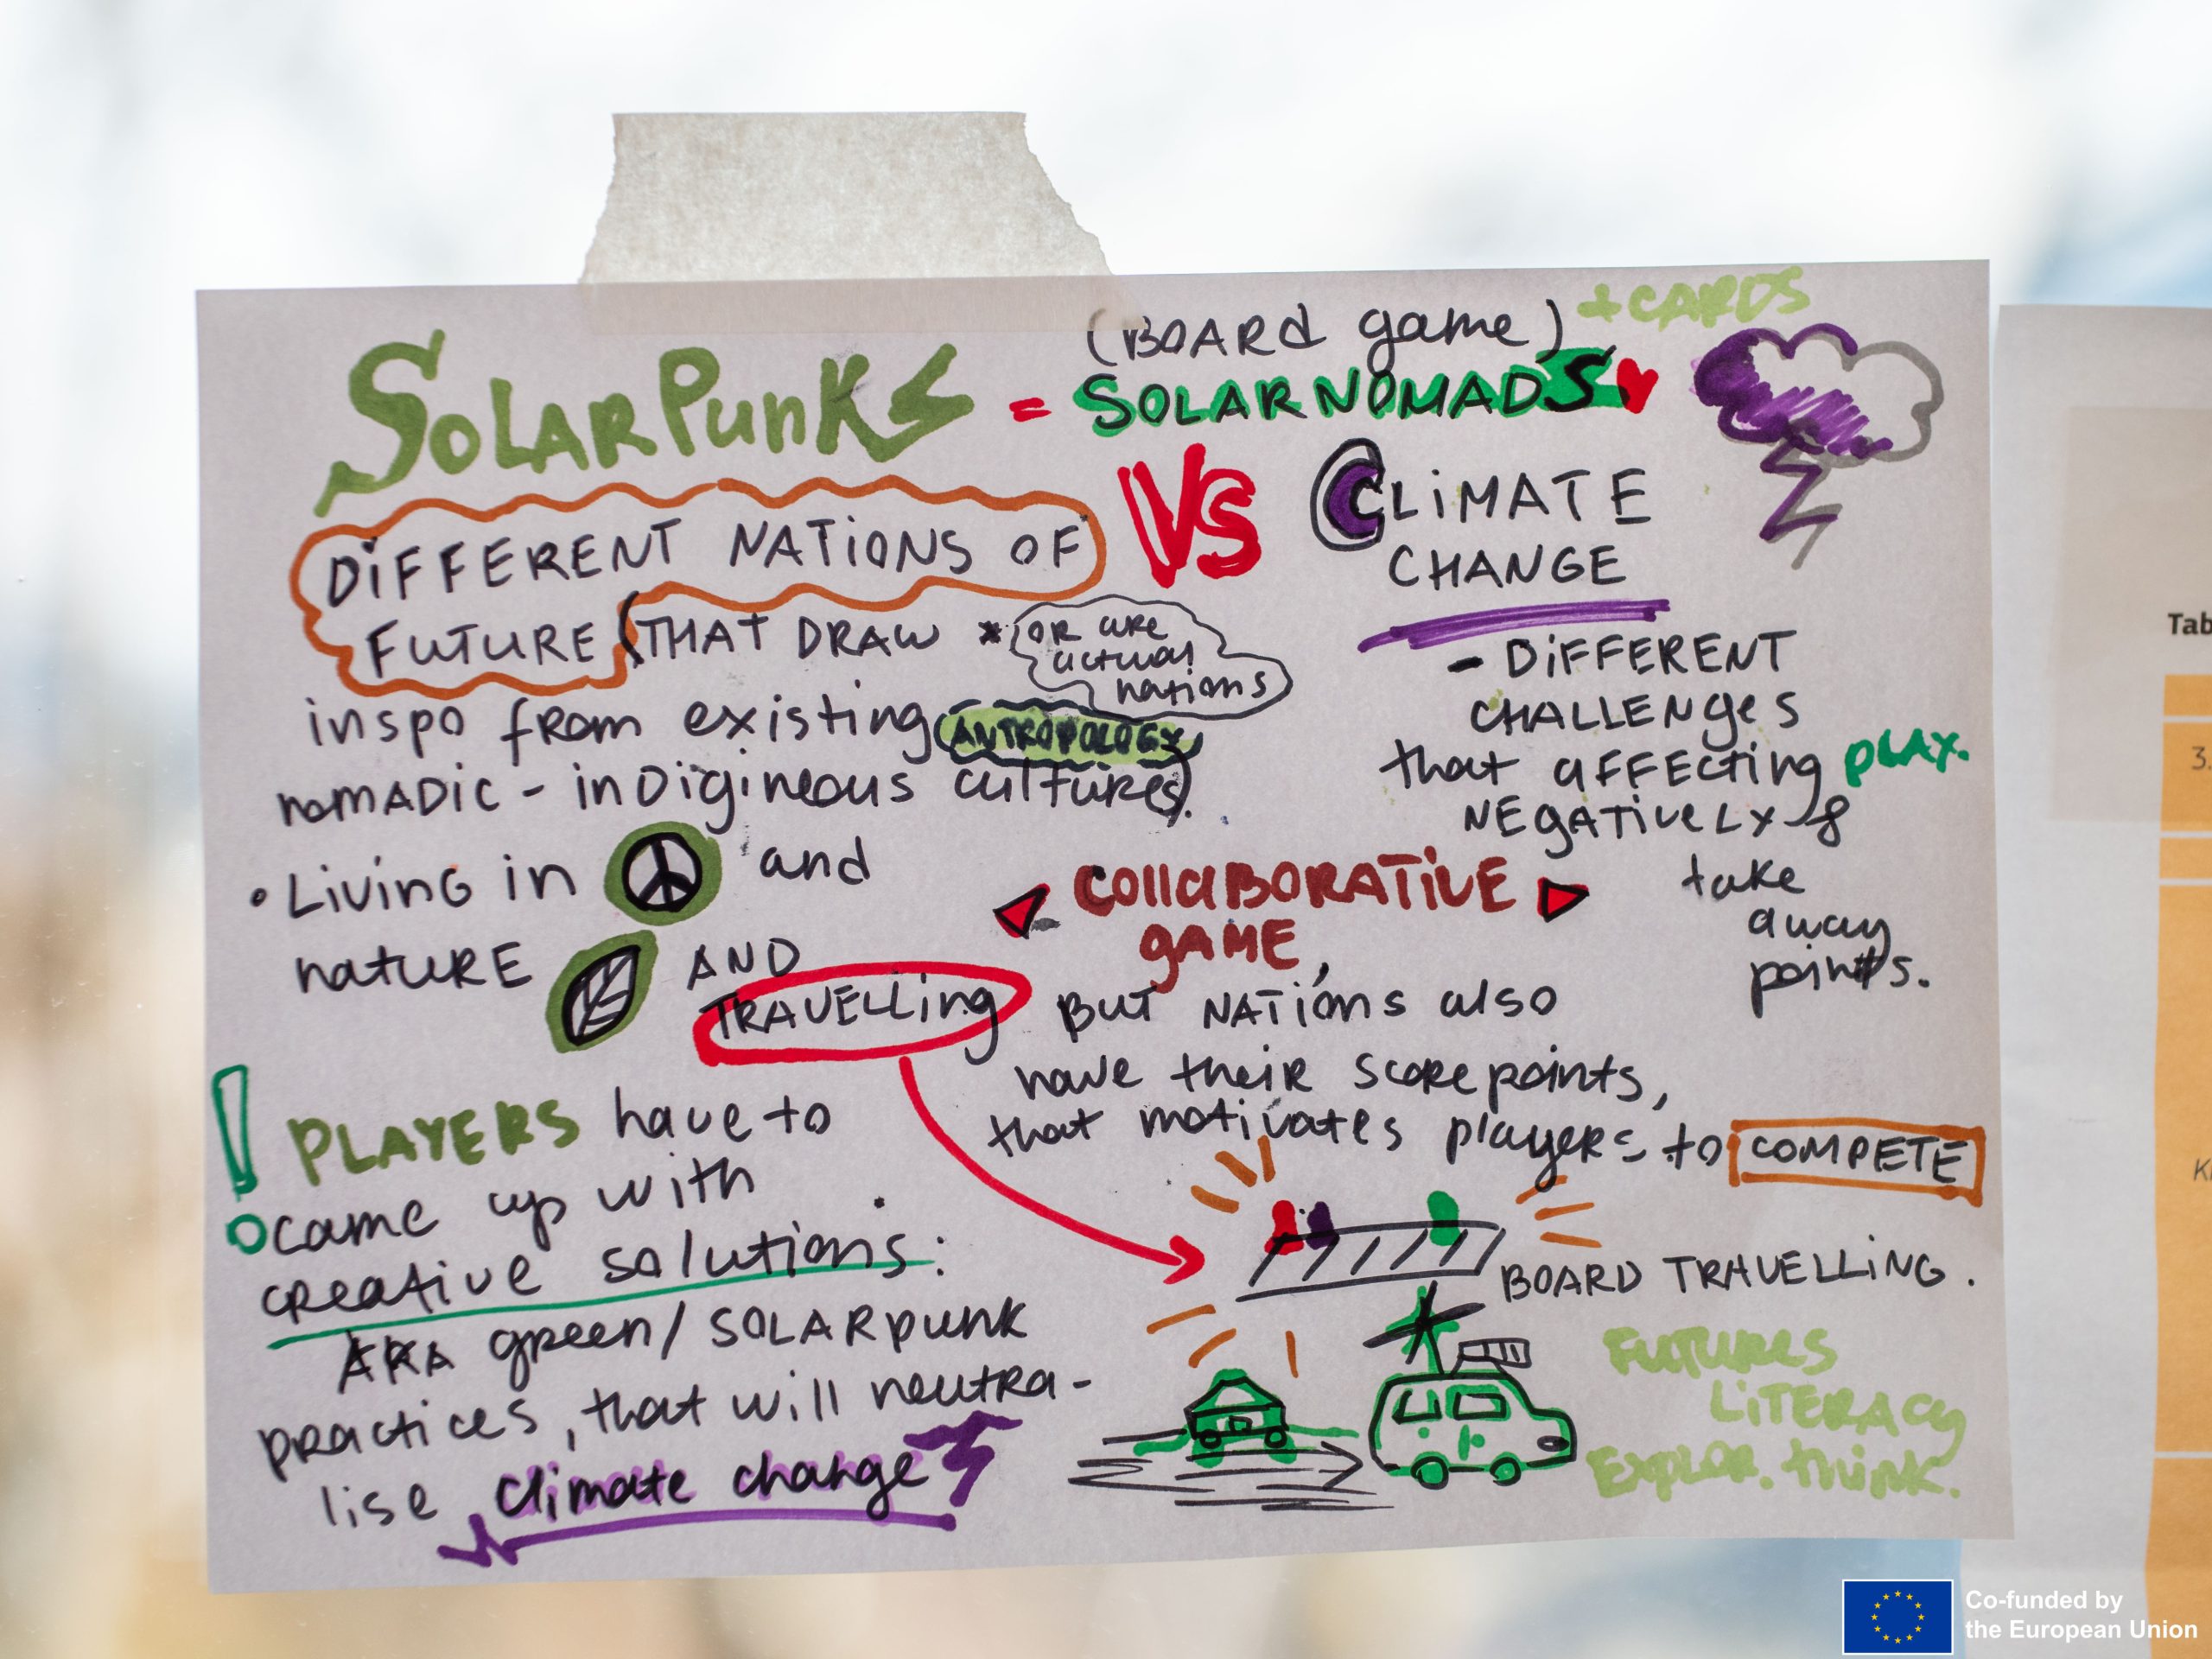 (BOARd game) +CARDS
SOLARPunKS = SOLARNOMADS
VS CLiMATE
CHANGE
DiFFERENT NATiONS OF
FUTURE (THAT DRAW * OR are
actual
nations
inspo fRom existing ANTROPOLOGY
nomADic - inDigineous cultures).
• Living in and
natuRE AND
TRAVELLing
- DiFFERENT
CHALLENgeS
that aFFEcting PLAY.
NEgATiveLY &
take
away
points.
CollaBORATiVE
gAME,
BuT NATiOns also
have theiR scoRe points,
that motivates playeRs to COMPETE
! PLAYERS have to
come up with
cReative solutions:
AKA green/ SOLARpunk
pRactices, that will neutra-
lise climate change
BOARD TRAVELLiNG.
FUTURES
LiTERACy
ExploR. think.
Tab
3.
K
Co-funded by
the European Union